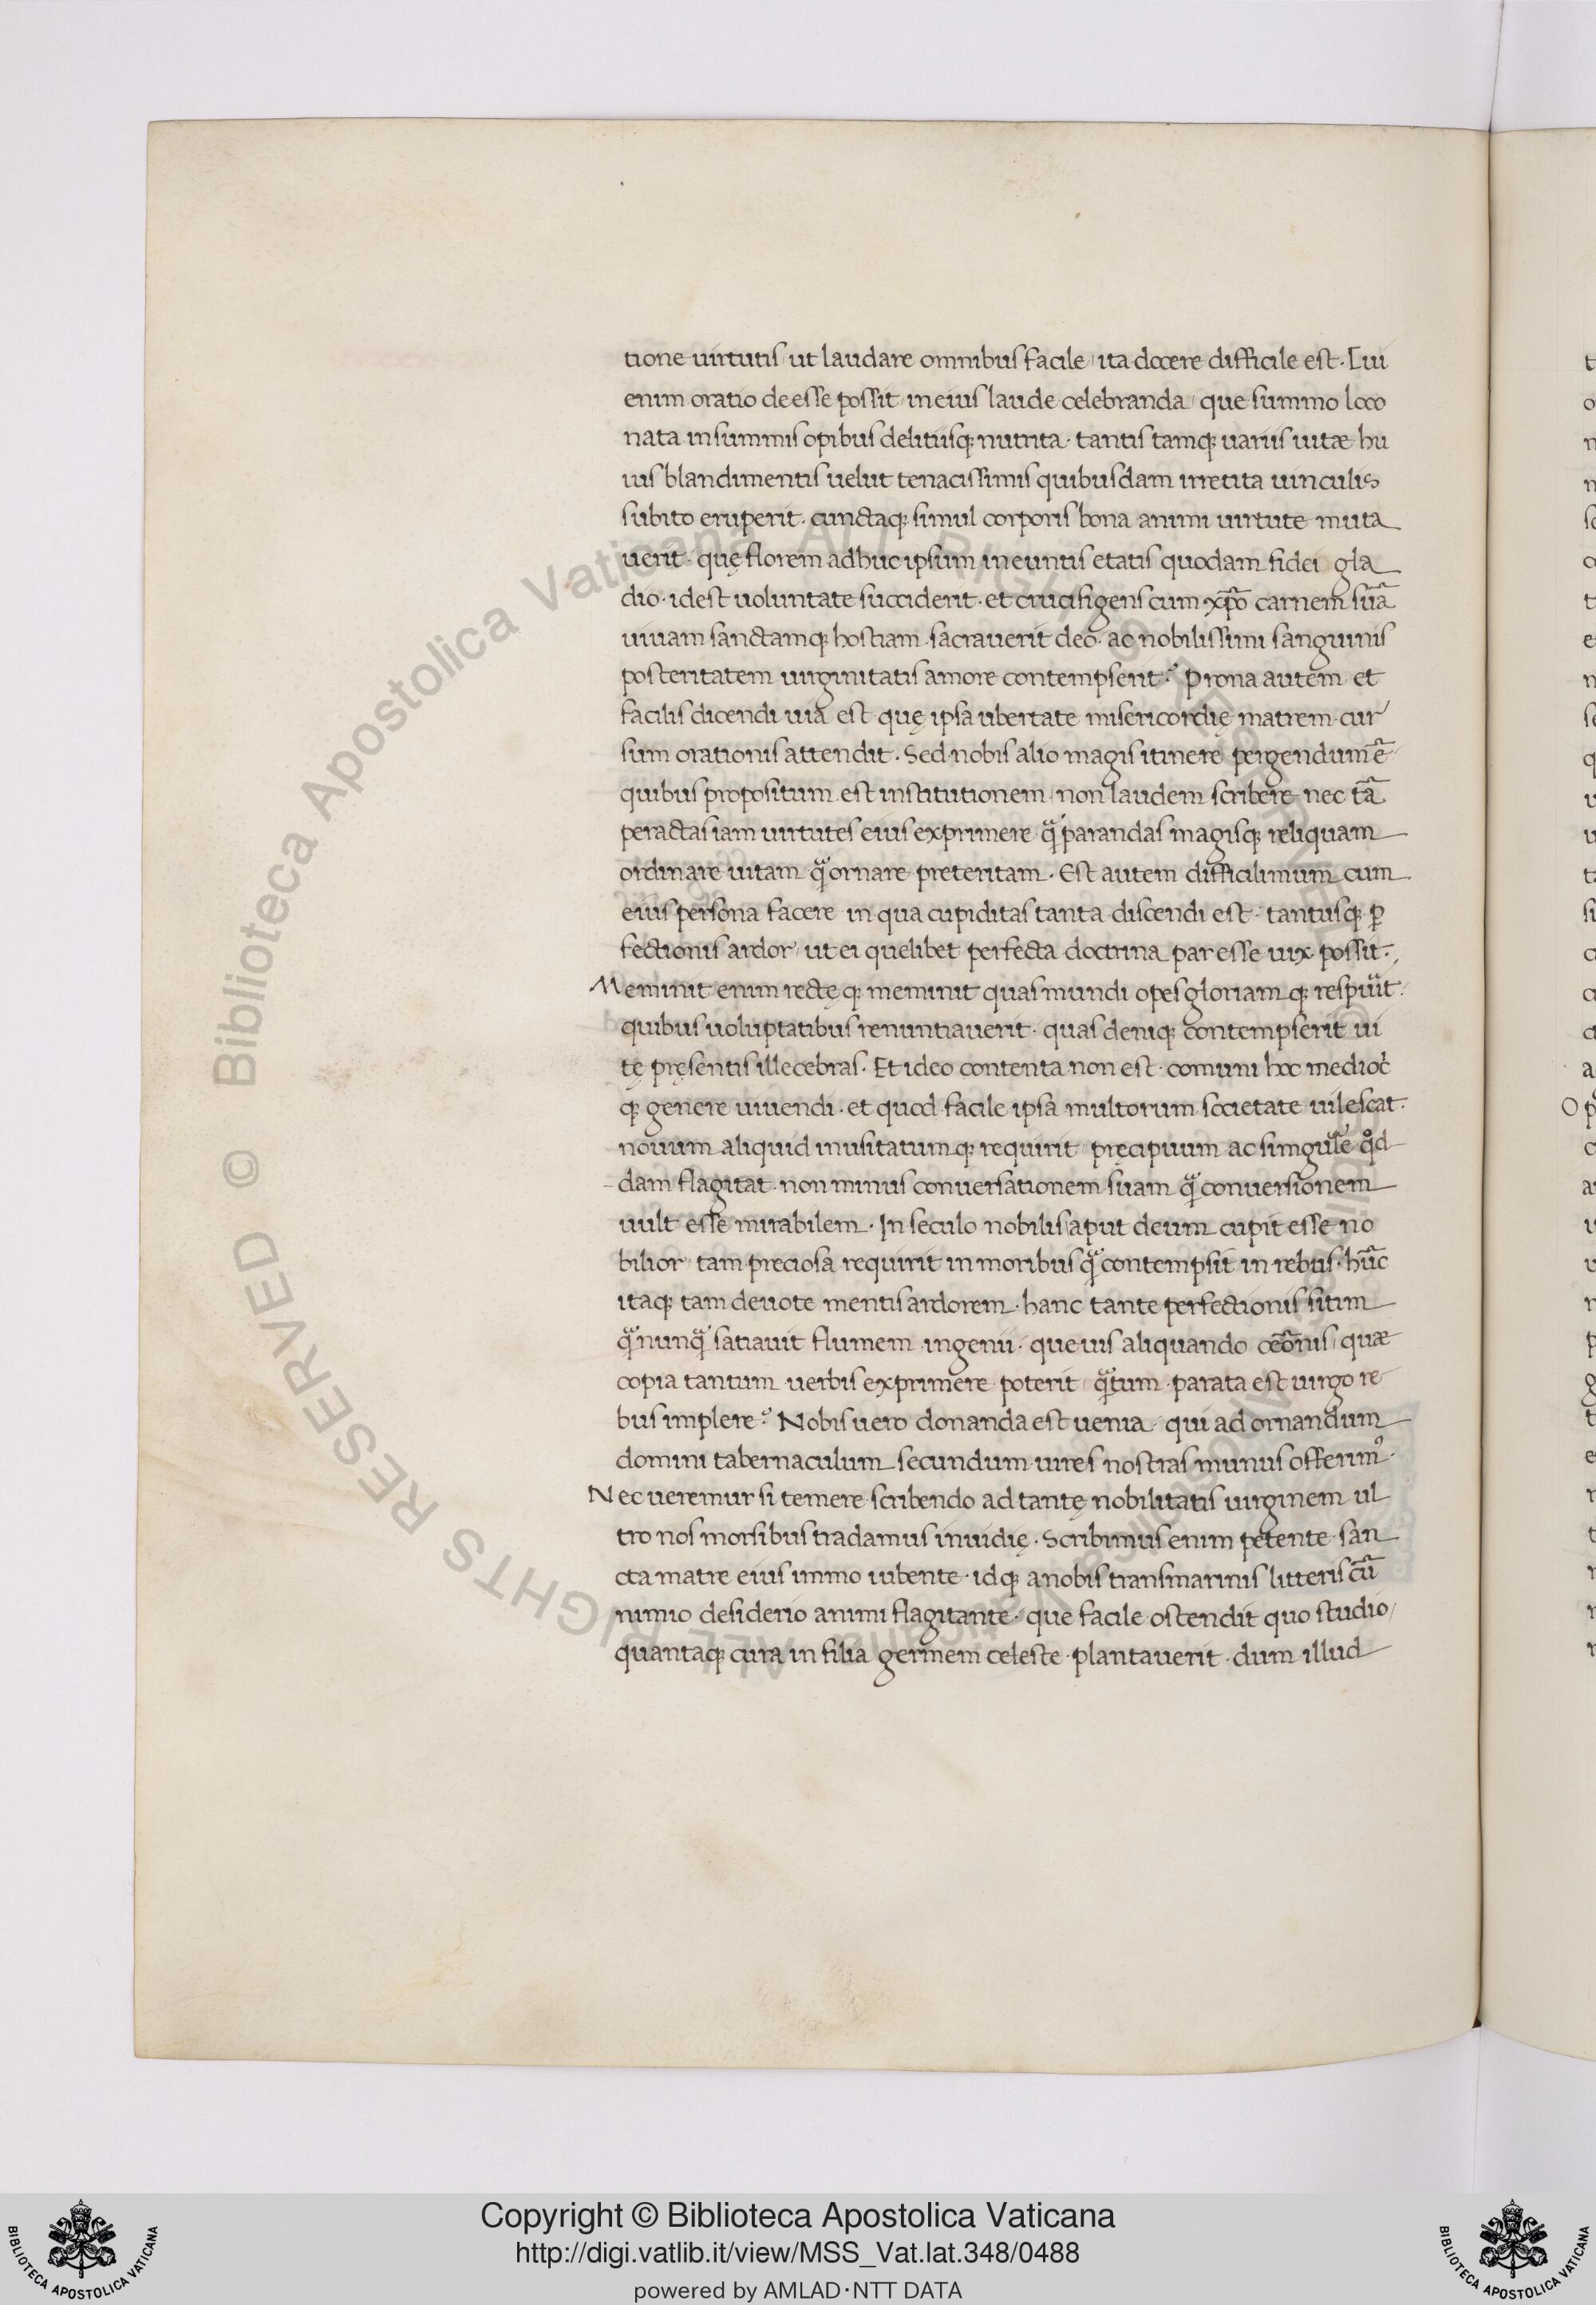 tione uirtutis ut laudare omnibus facile, ita docere difficile est. Cui
enim oratio deesse possit in eius laude celebranda, que summo loco
nata in summis opibus delitiisq; nutrita. tantis tamq; uariis uitæ hu
ius blandimentis uelut tenacissimis quibusdam irretita uinculis
subito eruperit. cunctaq; simul corporis bona animi uirtute muta
uerit. quę florem adhuc ipsum ineuntis etatis quodam fidei gla
dio. idest uoluntate succiderit. et crucifigens cum xp̄o carnem suā
uiuam sanctamq; hostiam sacrauerit deo. ac nobilissimi sanguinis
posteritatem uirginitatis amore contempserit? Prona autem et
facilis dicendi uia est quę ipsa ubertate misericordię matrem cur
sum orationis attendit. Sed nobis alio magis itinere pergendum ē
quibus propositum est institutionem, non laudem scribere nec tā
peractas iam uirtutes eius exprimere q̄ parandas magisq; reliquam
ordinare uitam q̄ ornare preteritam. Est autem difficilimum cum
eius persona facere in qua cupiditas tanta discendi est. tantusq; ꝑ
fectionis ardor, ut ei quelibet perfecta doctrina par esse uix possit.
Meminit enim rectęq; meminit quas mundi opes gloriamq; respuit.
quibus uoluptatibus renuntiauerit. quas deniq; contempserit ui
tę pręsentis illecebras. Et ideo contenta non est comuni hoc medioc̓
q; genere uiuendi. et quod facile ipsa multorum societate uilescat.
nouum aliquid inusitatumq; requirit pręcipuum ac simgulare qd
dam flagitat. non minus conuersationem suam q̄ conuersionem
uult esse mirabilem. In seculo nobilis aput deum cupit esse no
bilior tam preciosa requirit in moribus q̄ contempsit in rebus. hūc
itaq; tam deuote mentis ardorem. hanc tante perfectionis sitim
q̄ nunq̄ satiauit flumem ingenii. queuis aliquando or̄onis, quæ
copia tantum uerbis exprimere poterit q̄tum parata est uirgo re
bus implere? Nobis uero donanda est uenia. qui ad ornandum
domini tabernaculum secundum uires nostras munus offerim᾿.
Nec ueremur si temere scribendo ad tantę nobilitatis uirginem ul
tro nos morsibus tradamus inuidię. Scribimus enim petente san
cta matre eius immo iubente. idq; a nobis transmarinis litteris cū
nimio desiderio animi flagitante. que facile ostendit quo studio,
quantaq; cura in filia germem celeste plantauerit. dum illud
© Biblioteca Apostolica Vaticana ALL RIGHTS RESERVED
Copyright © Biblioteca Apostolica Vaticana
http://digi.vatlib.it/view/MSS_Vat.lat.348/0488
powered by AMLAD·NTT DATA
BIBLIOTECA APOSTOLICA VATICANA
BIBLIOTECA APOSTOLICA VATICANA